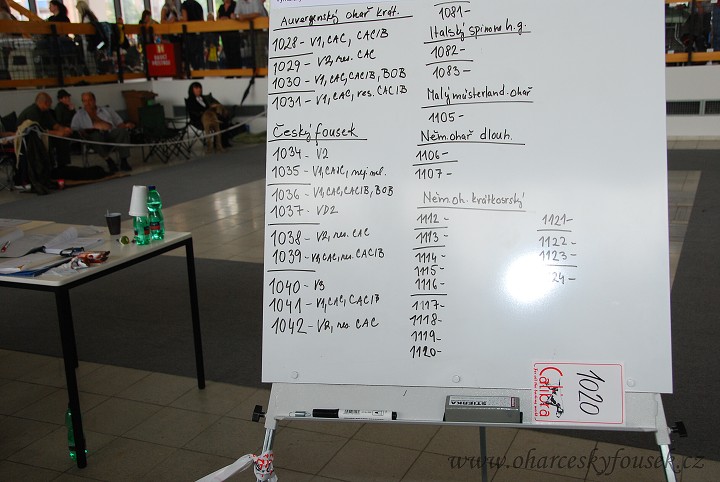 Auvergenský ohař krát.
1028 - V1, CAC, CACIB
1029 - V2, res. CAC
1030 - V1, CAC, CACIB, BOB
1031 - V1, CAC, res. CACIB
Český fousek
1034 - V2
1035 - V1, CAJC, nej. ml.
1036 - V1, CAC, CACIB, BOB
1037 - VD2
1038 - V2, res. CAC
1039 - V1, CAC, res. CACIB
1040 - V3
1041 - V1, CAC, CACIB
1042 - V2, res. CAC
1081 -
Italský spinone h.g.
1082 -
1083 -
Malý münsterland. ohař
1105 -
Něm. ohař dlouh.
1106 -
1107 -
Něm. oh. krátkosrstý
1112 -
1113 -
1114 -
1115 -
1116 -
1117 -
1118 -
1119 -
1120 -
1121 -
1122 -
1123 -
24 -
STIEFEL
Calibra
1020
www.oharceskyfousek.cz